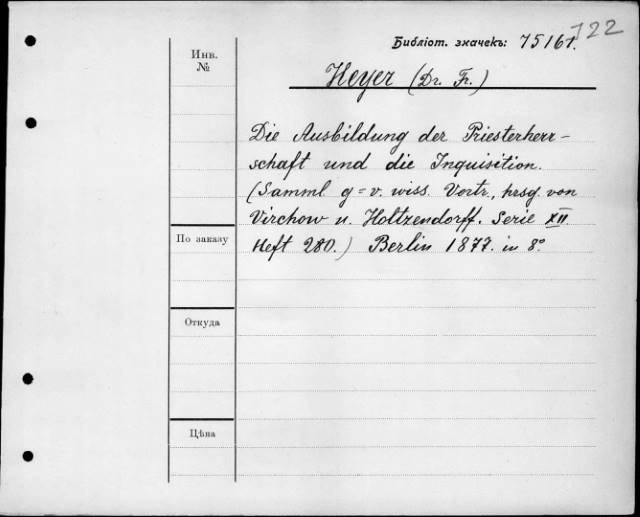 722
Библіот. значекъ: 75161.
Инв.
№
Heyer (Dr. Fr.)
Die Ausbildung der Priesterherr-
schaft und die Inquisition.
(Samml g=v. wiss. Vortr., hrsg. von
Virchow u. Holtzendorff. Serie XII
Heft 280.) Berlin 1877. in 8°.
По заказу
Откуда
Цѣна